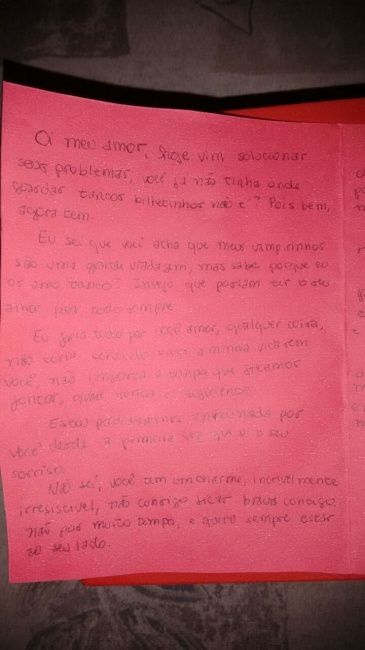 Oi meu amor, hoje vim solucionar
seus problemas, você já não tinha onde
guardar tantos bilhetinhos não é? Pois bem,
agora tem.
Eu sei que você acha que meus vampirinhos
são uma grande viadagem, mas sabe porque eu
os amo tanto? Invejo que possam ter o seu
amor para todo sempre
Eu faria tudo por você amor, qualquer coisa,
não teria sentido viver a minha vida sem
você, não importa o tempo que ficamos
juntos, nunca é suficiente
Estou perdidamente apaixonada por
você desde a primeira vez que vi o seu
sorriso.
Não sei, você tem um charme, incrivelmente
irresistível, não consigo ficar brava contigo,
não por muito tempo, e quero sempre estar
ao seu lado.